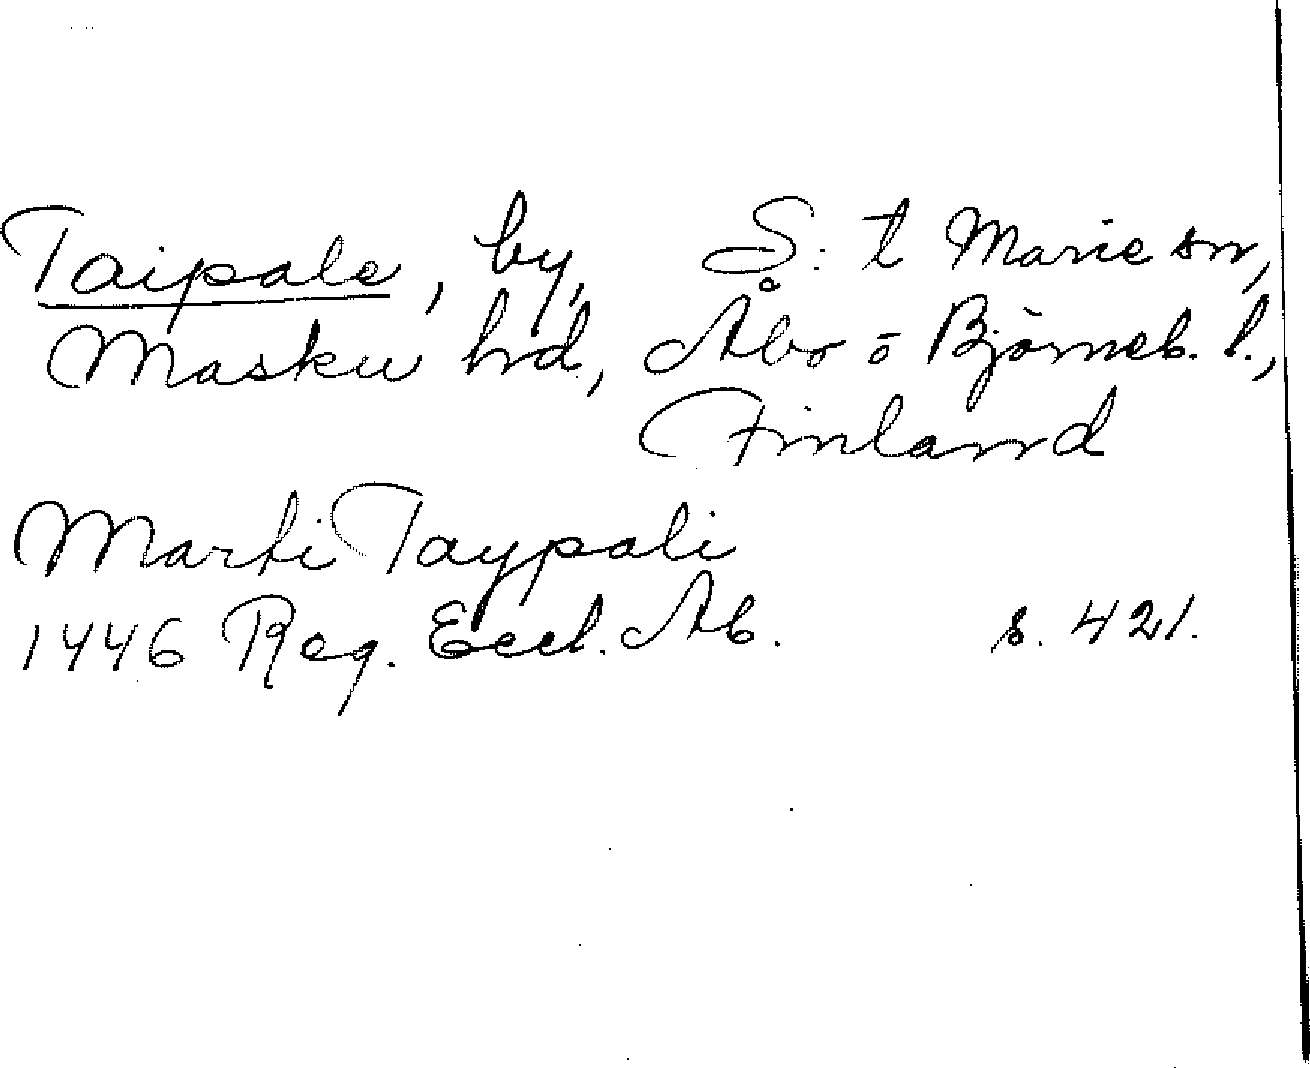 Taipale, by, S:t Marie sn,
Masku hd, Åbo o Björneb. l.,
Finland
Marti Taypali
1446 Reg. Eccl. Ab. s. 421.